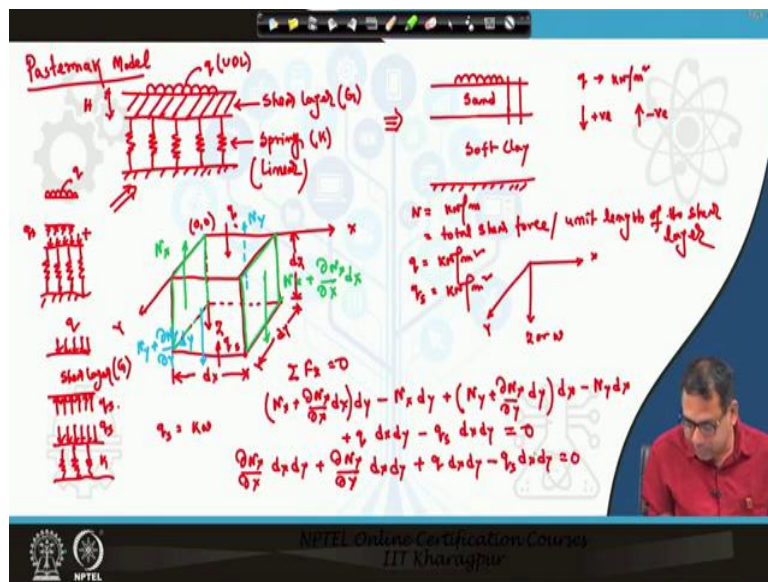 Pasternak Model
q (UDL)
H
Shear layer (G)
Spring (K)
(Linear)
q
q_s
q
Shear layer (G)
q_s
q_s
K
≡>
Sand
Soft Clay
q → kN/m²
↓ +ve ↑ -ve
N = kN/m
= total shear force / unit length of the shear layer
q = kN/m²
q_s = kN/m²
X
Y
Z or w
(0,0)
q
N_y
X
N_x
dz
N_x + ∂N_x/∂x dx
Y
Z
dy
N_y + ∂N_y/∂y dy
q_s
dx
q_s = Kw
Σ F_z = 0
(N_x + ∂N_x/∂x dx) dy - N_x dy + (N_y + ∂N_y/∂y dy) dx - N_y dx
+ q dx dy - q_s dx dy = 0
∂N_x/∂x dx dy + ∂N_y/∂y dx dy + q dx dy - q_s dx dy = 0
NPTEL Online Certification Courses
IIT Kharagpur
NPTEL